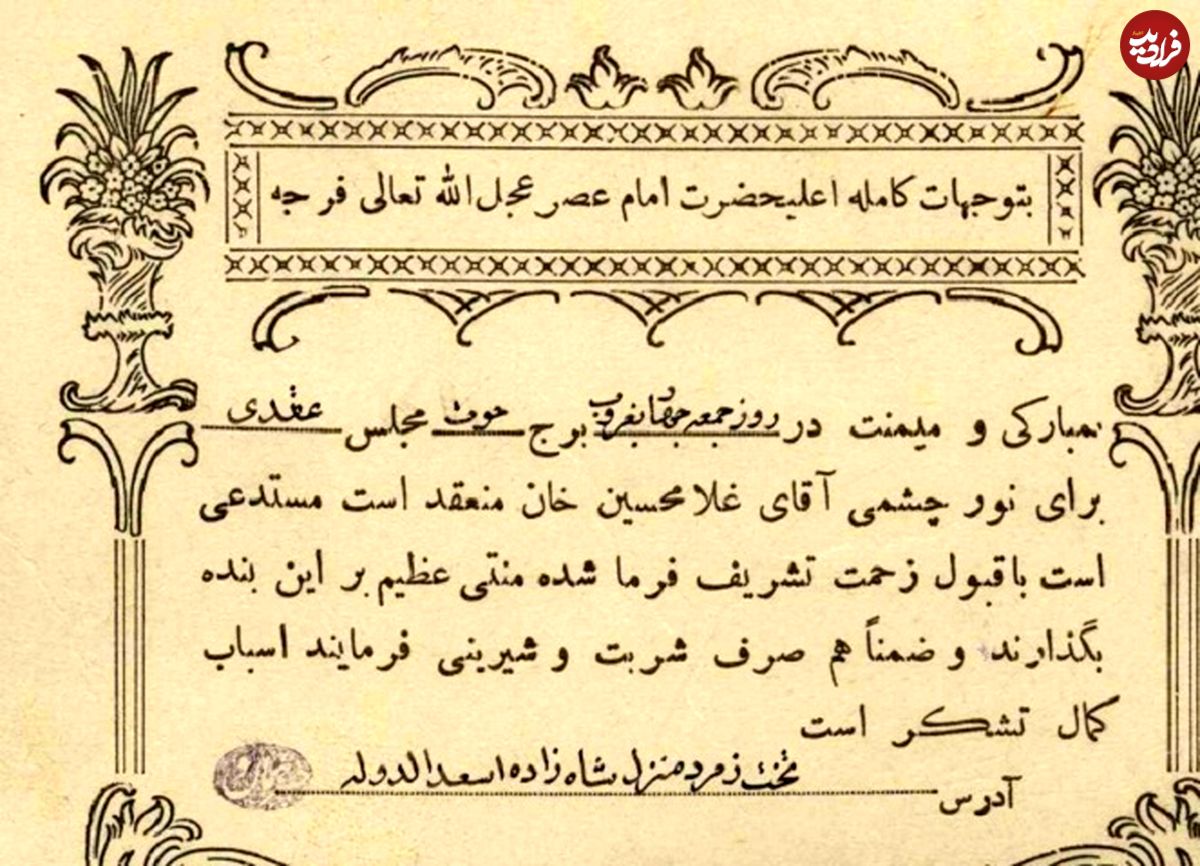 فرادید
بتوجهات کامله اعلیحضرت امام عصر عجل الله تعالی فرجه
بمبارکی و میمنت در روز جمعه بغروب برج حوت مجلس عقدی
برای نور چشمی آقای غلامحسین خان منعقد است مستدعی
است با قبول زحمت تشریف فرما شده منتی عظیم بر این بنده
بگذارند و ضمناً هم صرف شربت و شیرینی فرمایند اسباب
کمال تشکر است
زمرد منزل شاه زاده اسعدالدوله
آدرس